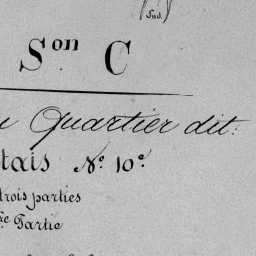 (Sud.)
Son C
Quartier dit:
tais No. 10e
trois parties
re Partie